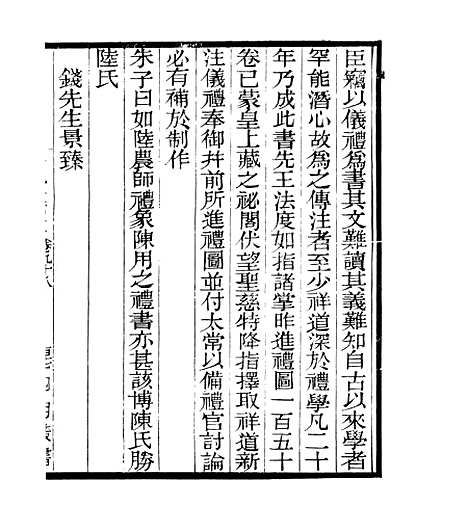 臣竊以儀禮爲書其文難讀其義難知自古以來學者
罕能潛心故爲之傳注者至少祥道深於禮學凡二十
年乃成此書先王法度如指諸掌昨進禮圖一百五十
卷已蒙皇上藏之祕閣伏望聖慈特降指擇取祥道新
注儀禮奉御幷前所進禮圖並付太常以備禮官討論
必有補於制作
朱子曰如陸農師禮象陳用之禮書亦甚該博陳氏勝
陸氏
錢先生景臻